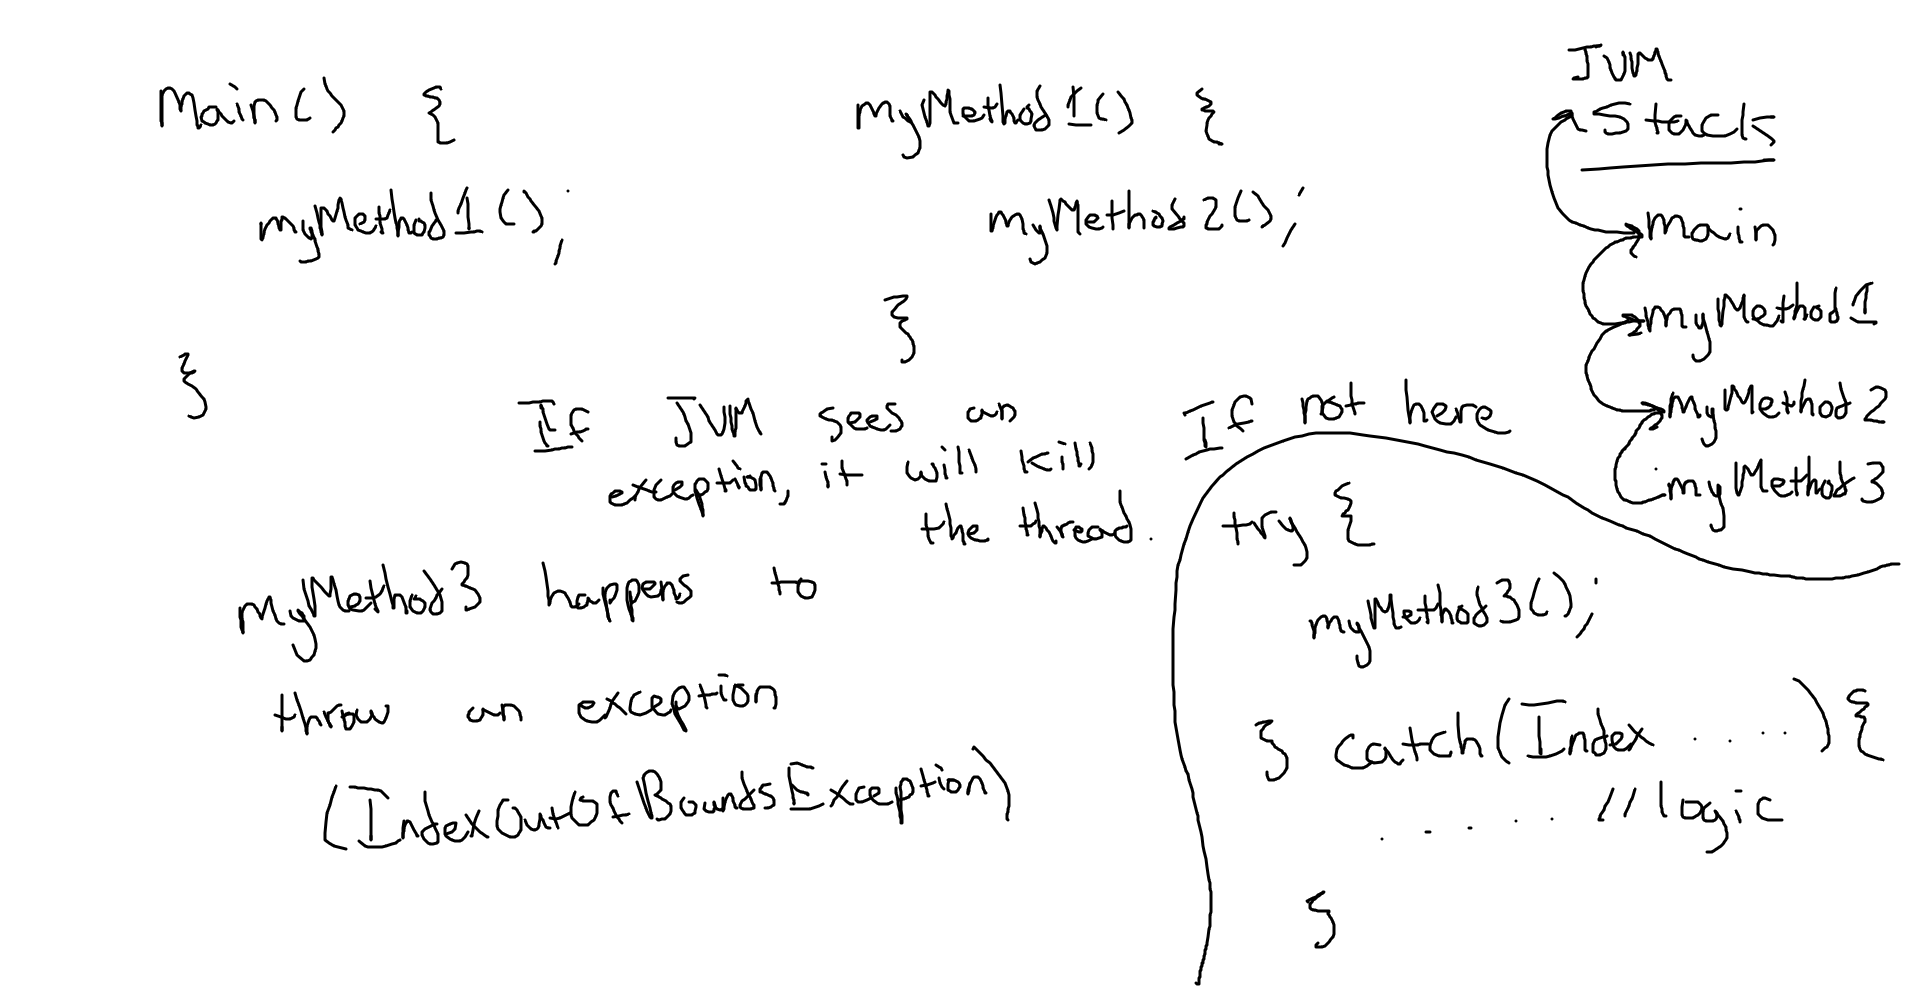 Main() {
myMethod1();
}
myMethod1() {
myMethod2();
}
JVM
Stack
main
myMethod1
myMethod2
myMethod3
If JVM sees an
exception, it will kill
the thread.
myMethod3 happens to
throw an exception
(IndexOutOfBoundsException)
If not here
try {
myMethod3();
} catch(Index ....) {
..... //logic
}